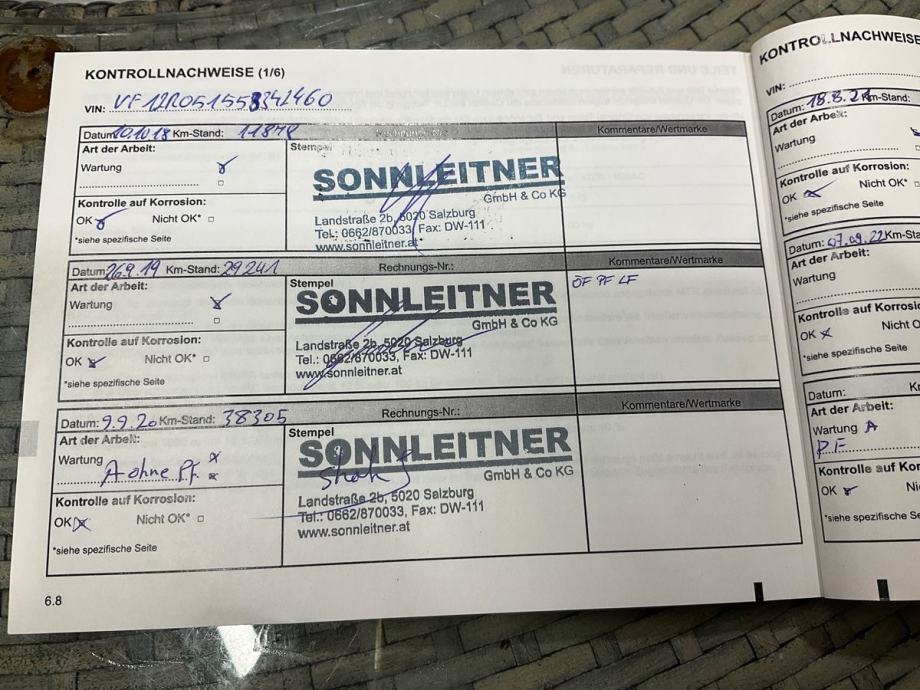 KONTROLLNACHWEISE (1/6)
VIN: VF12R051558342460
Datum: 10.10.18 Km-Stand: 11878 Rechnungs-Nr.: Kommentare/Wertmarke
Art der Arbeit:
Wartung
Kontrolle auf Korrosion:
OK Nicht OK*
*siehe spezifische Seite
Stempel
SONNLEITNER
GmbH & Co KG
Landstraße 2b, 5020 Salzburg
Tel.: 0662/870033, Fax: DW-111
www.sonnleitner.at
Datum: 26.9.19 Km-Stand: 29241 Rechnungs-Nr.: Kommentare/Wertmarke
Art der Arbeit:
Wartung
Kontrolle auf Korrosion:
OK Nicht OK*
*siehe spezifische Seite
Stempel
SONNLEITNER
GmbH & Co KG
Landstraße 2b, 5020 Salzburg
Tel.: 0662/870033, Fax: DW-111
www.sonnleitner.at
ÖF PF LF
Datum: 9.9.20 Km-Stand: 38305 Rechnungs-Nr.: Kommentare/Wertmarke
Art der Arbeit:
Wartung
A ohne P.F.
Kontrolle auf Korrosion:
OK Nicht OK*
*siehe spezifische Seite
Stempel
SONNLEITNER
GmbH & Co KG
Landstraße 2b, 5020 Salzburg
Tel.: 0662/870033, Fax: DW-111
www.sonnleitner.at
6.8
KONTROLLNACHWEISE
VIN:
Datum: 18.8.21 Km-Stand:
Art der Arbeit:
Wartung
Kontrolle auf Korrosion:
OK Nicht OK*
*siehe spezifische Seite
Datum: 07.09.22 Km-Sta
Art der Arbeit:
Wartung
Kontrolle auf Korrosio
OK Nicht O
*siehe spezifische Se
Datum:
Art der Arbeit:
Wartung A
P.F
Kontrolle auf Korro
OK Nicht
*siehe spezifische S